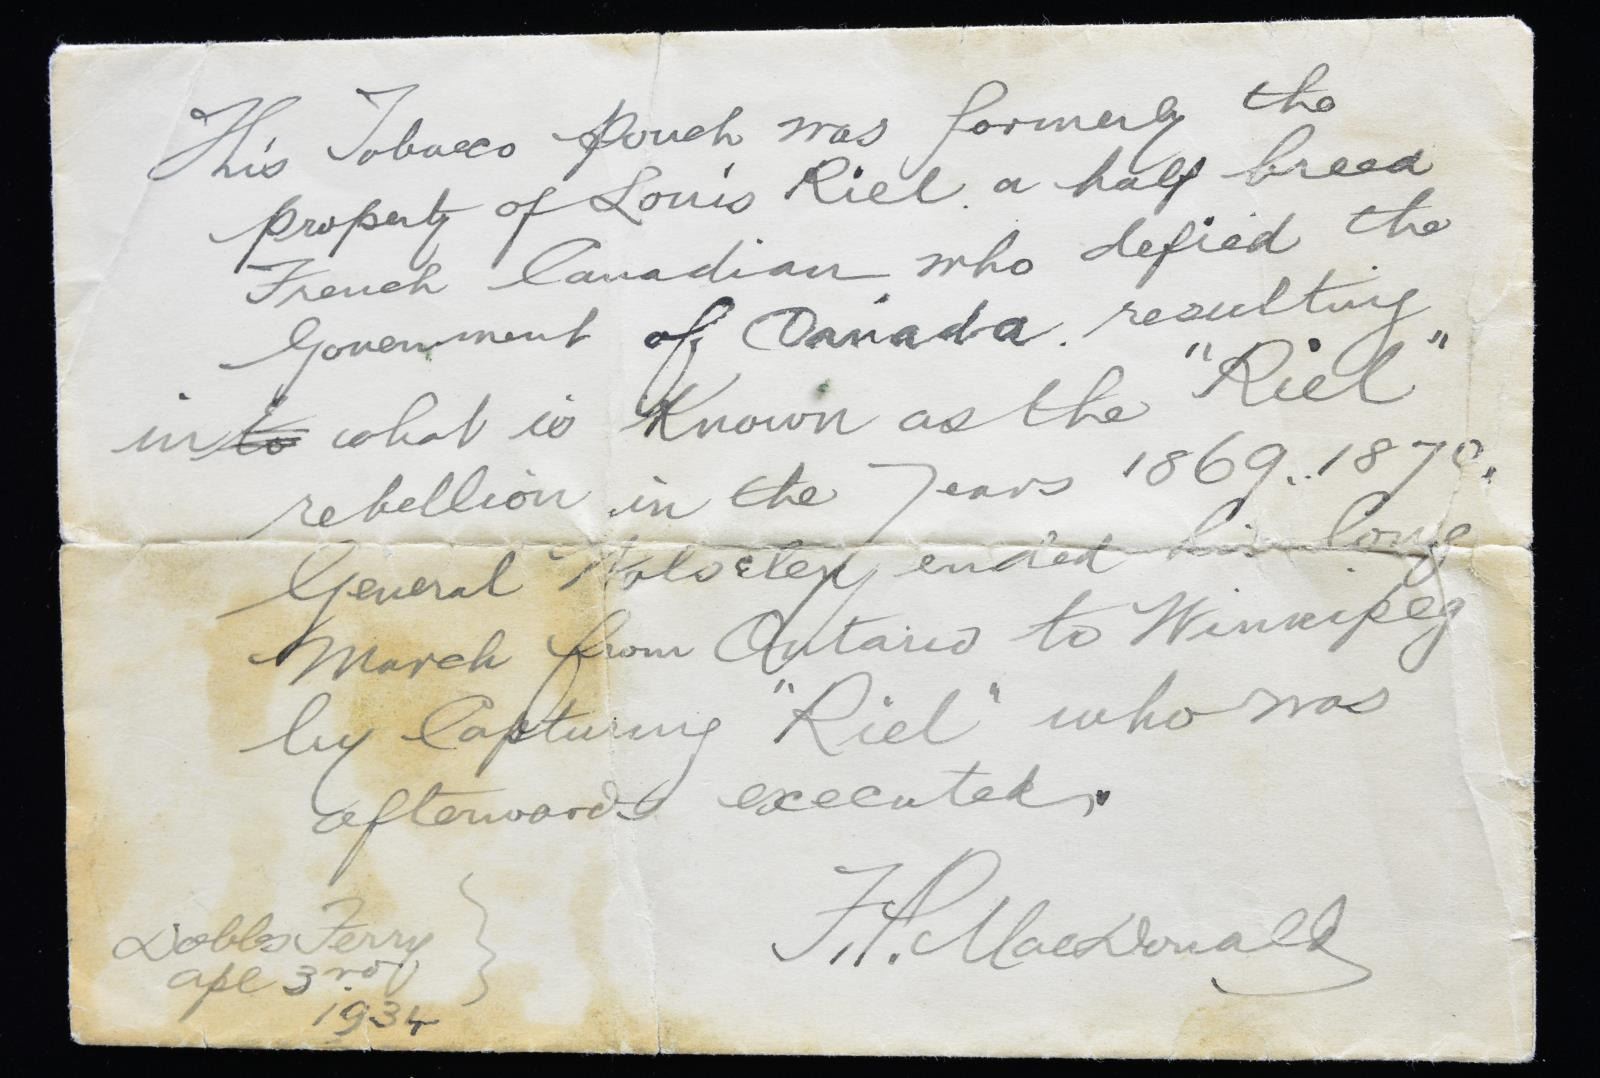 This Tobacco pouch was formerly the
property of Louis Riel. a half breed
French Canadian who defied the
Government of Canada. resulting
in to what is Known as the "Riel"
rebellion in the Years 1869..1870.
General Wolseley ended his long
March from Ontario to Winnipeg
by Capturing "Riel" who was
afterwards executed.
F. MacDonald
Dobbs Ferry
apl 3rd
1934